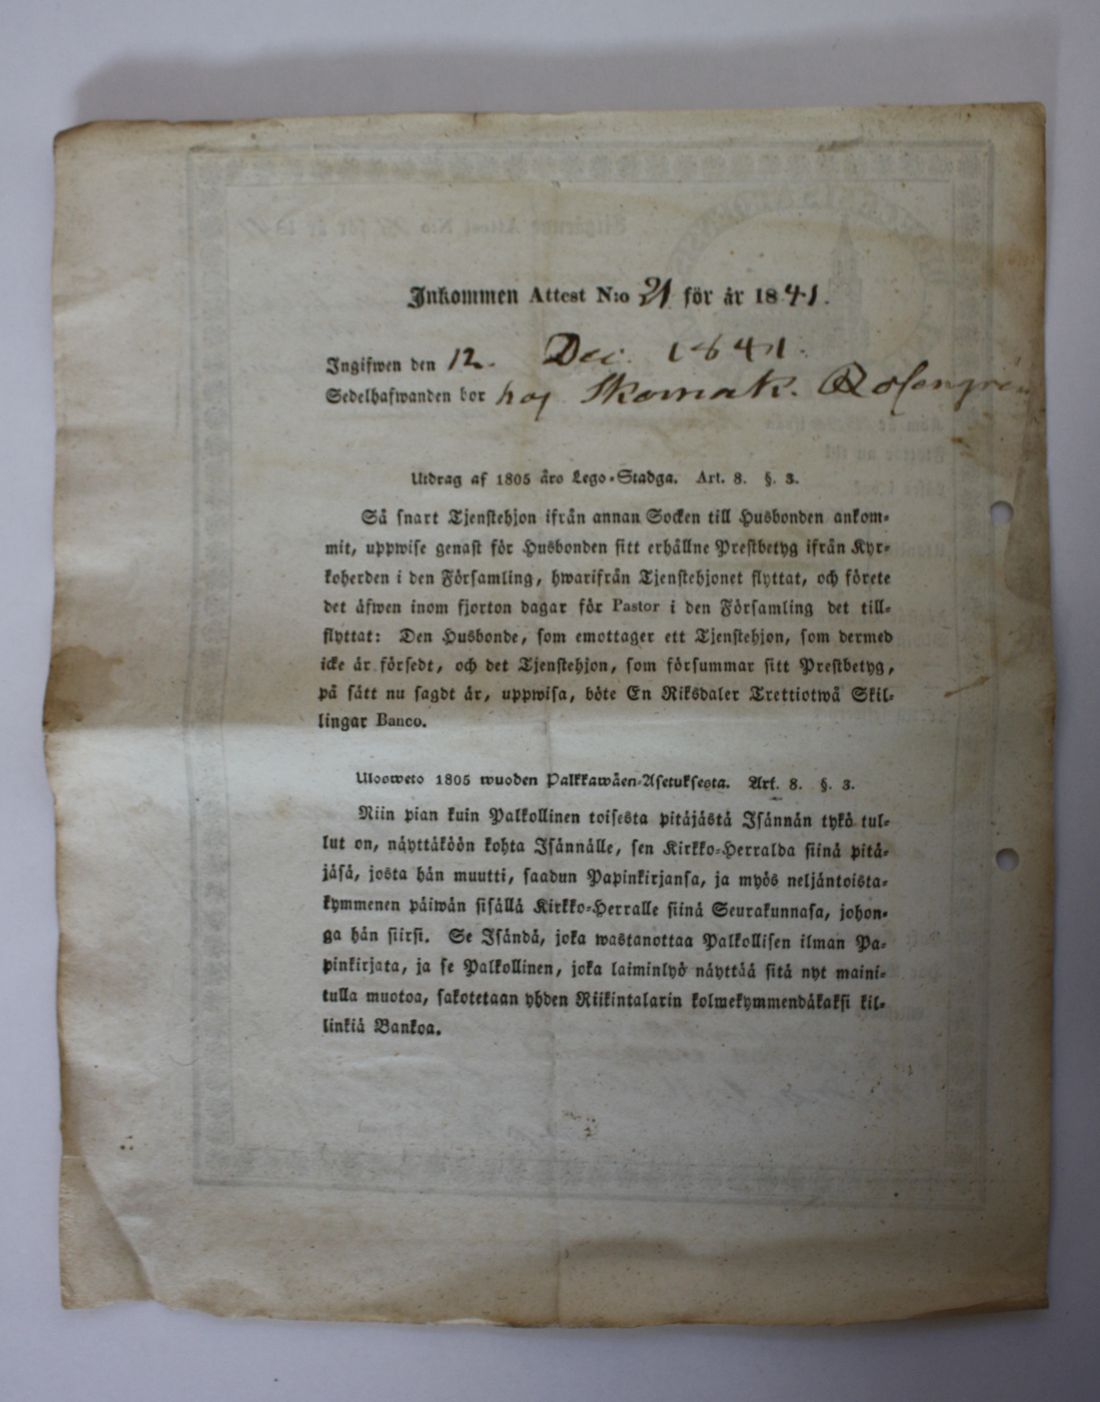 Inkommen Attest N:o 21 för år 1841.
Ingifwen den 12. Dec. 1841.
Sedelhafwanden bor hos Skomak. Rosengren
Utdrag af 1805 åro Lego-Stadga. Art. 8. §. 3.
Så snart Tjenstehjon ifrån annan Socken till Husbonden ankom-
mit, uppwise genast för Husbonden sitt erhållne Prestbetyg ifrån Kyr-
koherden i den Församling, hwarifrån Tjenstehjonet flyttat, och förete
det äfwen inom fjorton dagar för Pastor i den Församling det till-
flyttat: Den Husbonde, som emottager ett Tjenstehjon, som dermed
icke är försedt, och det Tjenstehjon, som försummar sitt Prestbetyg,
på sätt nu sagdt är, uppwisa, böte En Riksdaler Trettiotwå Skil-
lingar Banco.
Ulooweto 1805 wuoden Palkkawäen-Asetuksesta. Art. 8. §. 3.
Niin pian kuin Palkollinen toisesta pitäjästä Isännän tykö tul-
lut on, näyttäköön kohta Isännälle, sen Kirkko-Herralda siinä pitä-
jäsä, josta hän muutti, saadun Papinkirjansa, ja myös neljäntoista-
kymmenen päiwän sisällä Kirkko-Herralle siinä Seurakunnasa, johon-
ga hän siirsi. Se Isändä, joka wastanottaa Palkollisen ilman Pa-
pinkirjata, ja se Palkollinen, joka laiminlyö näyttää sitä nyt maini-
tulla muotoa, sakotetaan yhden Riikintalarin kolmekymmendäkaksi kil-
linkiä Bankoa.